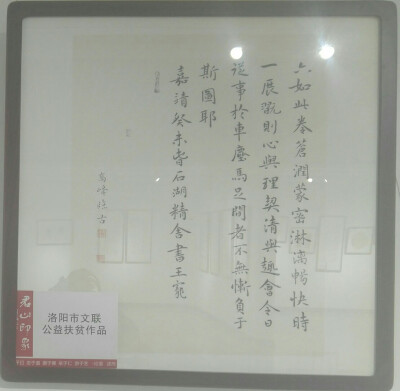 六如此卷蒼潤蒙密淋漓暢快時
一展翫則心與理契清與趣會今日
從事於車塵馬足間者不無慚負于
斯圖耶
嘉清癸未石湖精舍書王寵
君山印象
洛阳市文联
公益扶贫作品